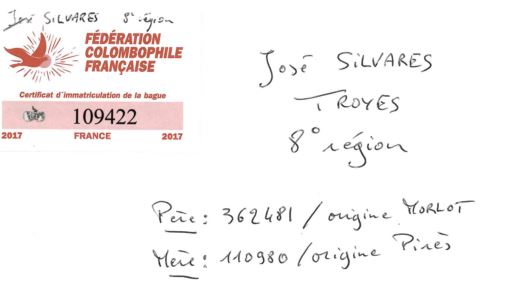 José SILVARES 8° région
FÉDÉRATION
COLOMBOPHILE
FRANÇAISE
Certificat d'immatriculation de la bague
109422
2017 FRANCE 2017
José SILVARES
TROYES
8° région
Père : 362481 / origine MORLOT
Mère : 110980 / origine Pirès